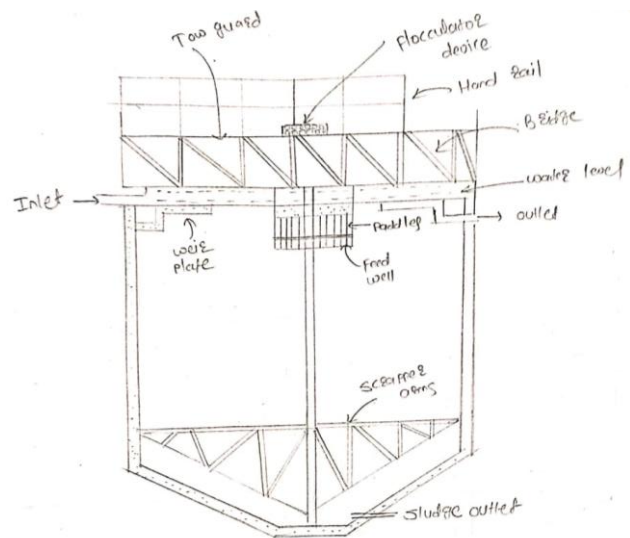 Tow guard
Flocculator
device
Hand rail
Bridge
water level
Inlet
outlet
weir
plate
Paddles
Feed
well
scrapper
arms
sludge outlet